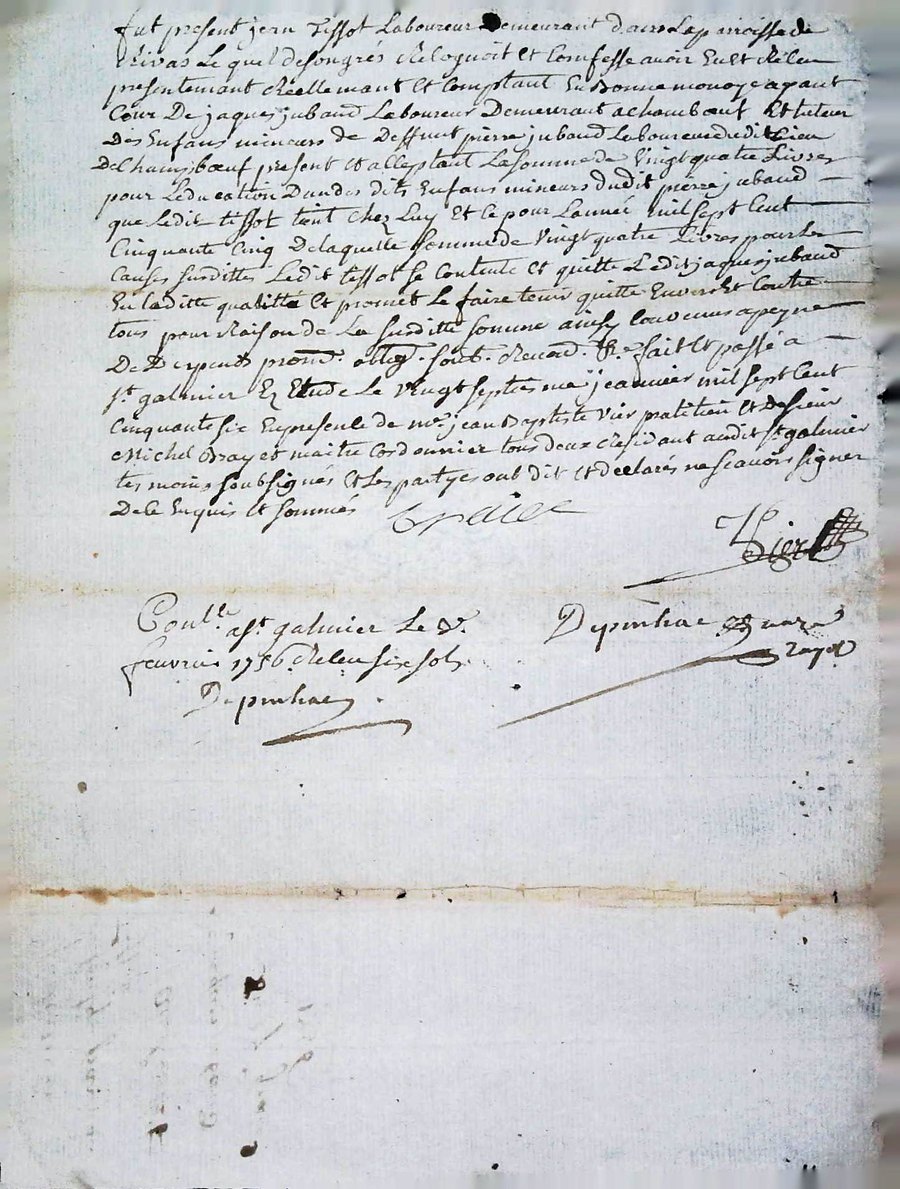 fut present jean tissot Laboureur Demeurant dans La parroisse de
Rivas Le quel de son grés Reloqnoit et Comfesse avoir Eu et Réleu
presentemant Réellemant et Comptant En Bonne monoye ayant
Cour De jaques jubaud Laboureur Demeurant a chambœuf Et tuteur
Des Enfans mineurs de Deffunt pierre jubaud Laboureur dudit Lieu
De Chambœuf present et alleptant La somme de Vingt quatre Livres
pour L'éducation D'un des dits Enfans mineurs dudit pierre jubaud
que Ledit tissot tient Chez Luy Et Ce pour L'année mil sept Cent
Cinquante Cinq De laquelle somme de Vingt quatre Livres pour Les
Causes susdittes Ledit tissot se Contente Et quitte Ledit jaques jubaud
En laditte qualitte Et promet Le faire tenir quitte Envers Et Contre
tous pour Raison de La susditte somme ainsy Convenus a peyne
De Depents prom. oblig. soub. Renond. fait Et passé a
st. galmier Ez Etude Le Vingt septiesme jeanvier mil sept Cent
Cinquante six En presence de mr. jean Baptiste Vier pratitien Et de sieur
Michel Bray et maitre Cordonnier tous deux Résidant audit st. galmier
tesmoins soubsignés Et Les partyes ont dit Et declarés ne scavoir signer
De Ce Enquis Et sommés
Vier
Contlle. a st. galmier Le
feuvrier 1756. Releu six sols.
Depinhac
Depinhac
Royal